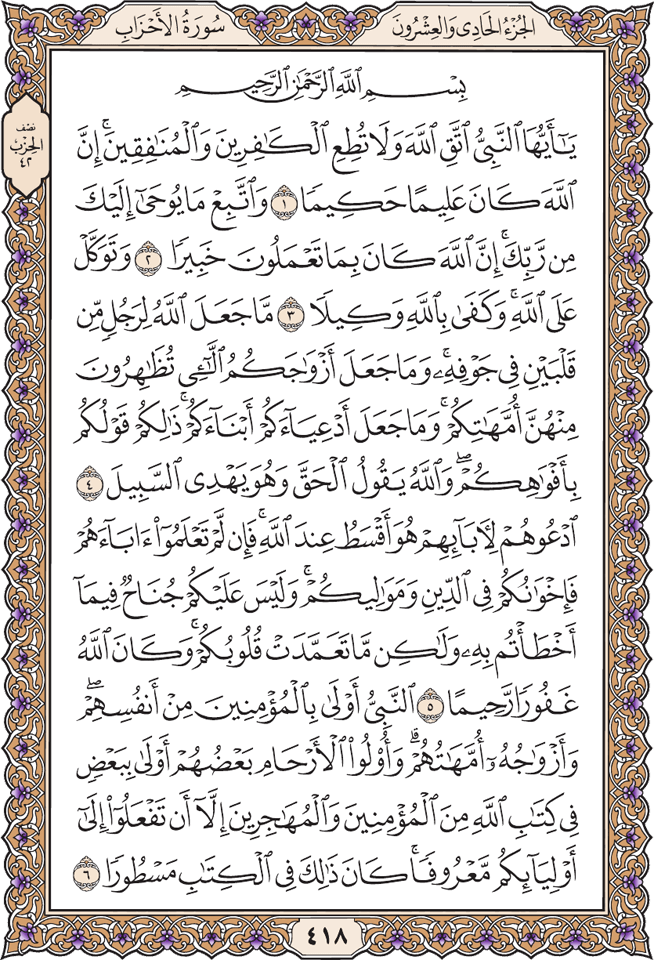 الجُزْءُ الحَادِى وَالعِشْرُونَ
سُورَةُ الأَحْزَابِ
نصف
الحِزْبِ
٤٢
بِسْمِ ٱللَّهِ ٱلرَّحْمَٰنِ ٱلرَّحِيمِ
يَٰٓأَيُّهَا ٱلنَّبِيُّ ٱتَّقِ ٱللَّهَ وَلَا تُطِعِ ٱلْكَٰفِرِينَ وَٱلْمُنَٰفِقِينَۚ إِنَّ
ٱللَّهَ كَانَ عَلِيمًا حَكِيمًا ١ وَٱتَّبِعْ مَا يُوحَىٰٓ إِلَيْكَ
مِن رَّبِّكَۚ إِنَّ ٱللَّهَ كَانَ بِمَا تَعْمَلُونَ خَبِيرًا ٢ وَتَوَكَّلْ
عَلَى ٱللَّهِۚ وَكَفَىٰ بِٱللَّهِ وَكِيلًا ٣ مَّا جَعَلَ ٱللَّهُ لِرَجُلٍ مِّن
قَلْبَيْنِ فِى جَوْفِهِۦۚ وَمَا جَعَلَ أَزْوَٰجَكُمُ ٱلَّٰٓـِٔى تُظَٰهِرُونَ
مِنْهُنَّ أُمَّهَٰتِكُمْۚ وَمَا جَعَلَ أَدْعِيَآءَكُمْ أَبْنَآءَكُمْۚ ذَٰلِكُمْ قَوْلُكُم
بِأَفْوَٰهِكُمْۖ وَٱللَّهُ يَقُولُ ٱلْحَقَّ وَهُوَ يَهْدِى ٱلسَّبِيلَ ٤
ٱدْعُوهُمْ لِءَابَآئِهِمْ هُوَ أَقْسَطُ عِندَ ٱللَّهِۚ فَإِن لَّمْ تَعْلَمُوٓا۟ ءَابَآءَهُمْ
فَإِخْوَٰنُكُمْ فِى ٱلدِّينِ وَمَوَٰلِيكُمْۚ وَلَيْسَ عَلَيْكُمْ جُنَاحٌ فِيمَآ
أَخْطَأْتُم بِهِۦ وَلَٰكِن مَّا تَعَمَّدَتْ قُلُوبُكُمْۚ وَكَانَ ٱللَّهُ
غَفُورًا رَّحِيمًا ٥ ٱلنَّبِىُّ أَوْلَىٰ بِٱلْمُؤْمِنِينَ مِنْ أَنفُسِهِمْۖ
وَأَزْوَٰجُهُۥٓ أُمَّهَٰتُهُمْۗ وَأُو۟لُوا۟ ٱلْأَرْحَامِ بَعْضُهُمْ أَوْلَىٰ بِبَعْضٍ
فِى كِتَٰبِ ٱللَّهِ مِنَ ٱلْمُؤْمِنِينَ وَٱلْمُهَٰجِرِينَ إِلَّآ أَن تَفْعَلُوٓا۟ إِلَىٰٓ
أَوْلِيَآئِكُم مَّعْرُوفًاۚ كَانَ ذَٰلِكَ فِى ٱلْكِتَٰبِ مَسْطُورًا ٦
٤١٨